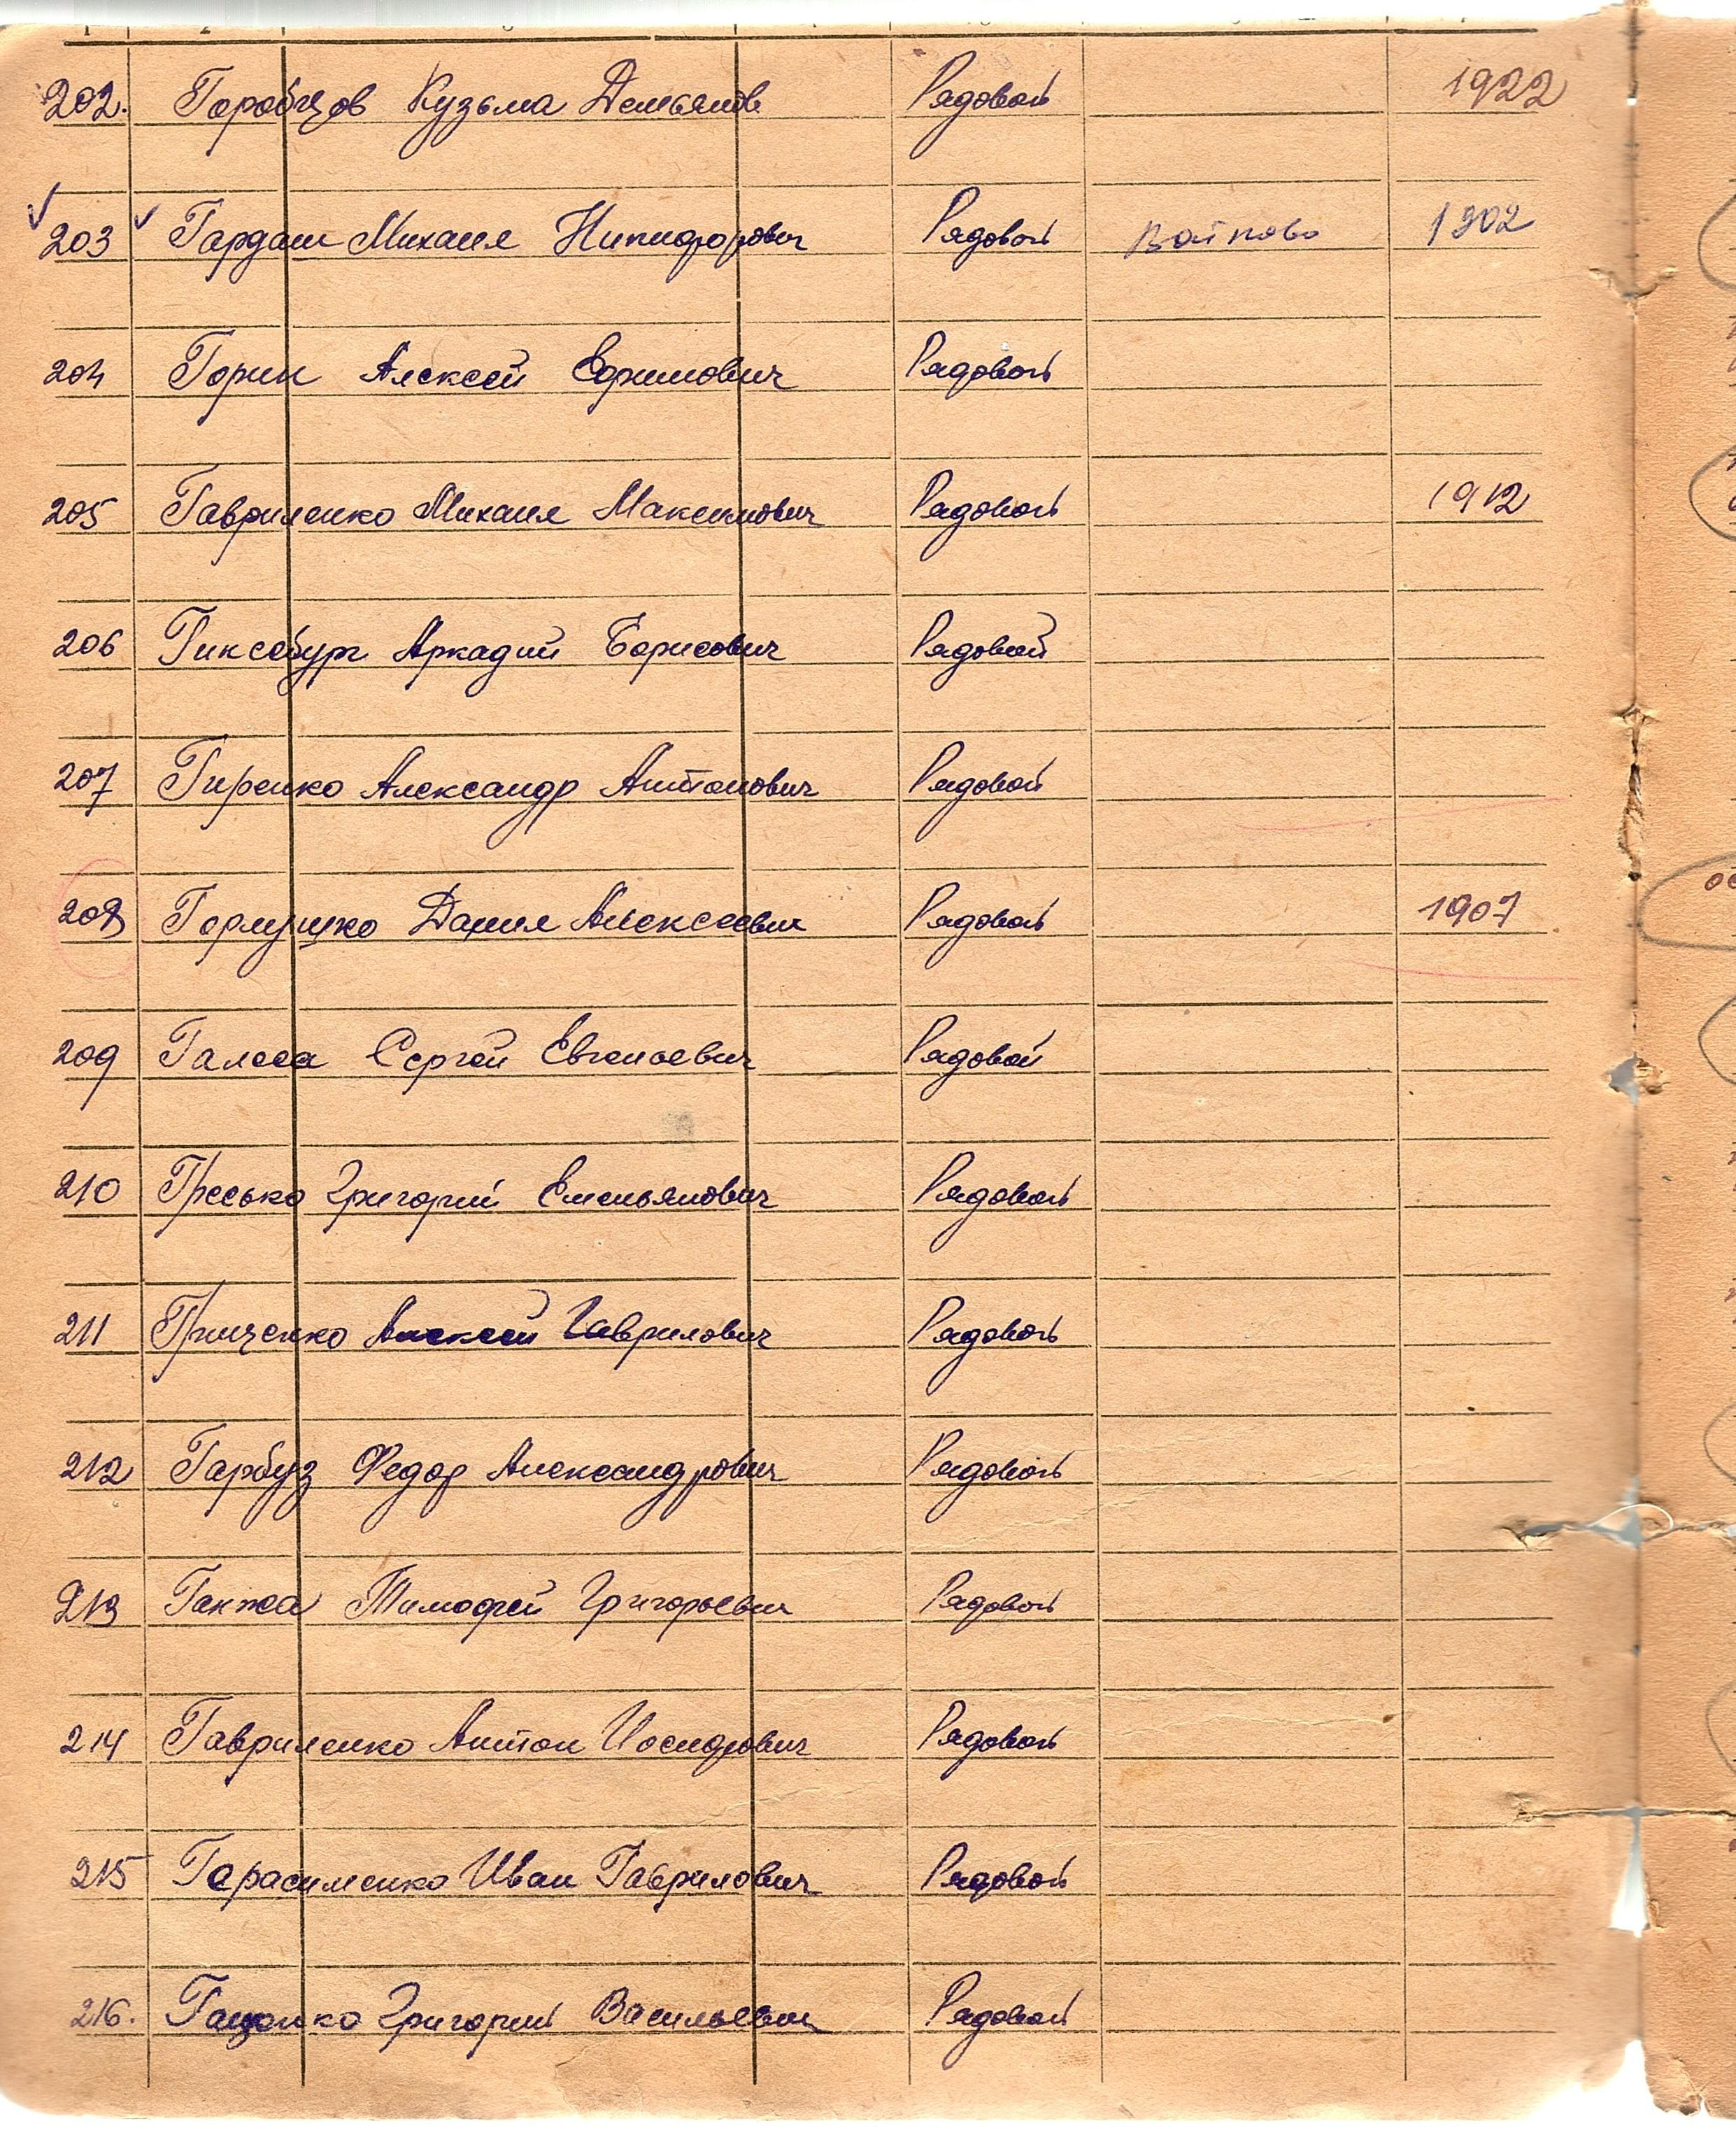 202. Горобцов Кузьма Демьянов Рядовой 1922
203 Гардаш Михаил Никифорович Рядовой Войково 1902
204 Горин Алексей Ефимович Рядовой
205 Гавриленко Михаил Максимович Рядовой 1912
206 Гинсбург Аркадий Борисович Рядовой
207 Гиренко Александр Антонович Рядовой
208 Данил Алексеевич Рядовой 1907
209 Сергей Евгеньевич Рядовой
210 Гресько Григорий Емельянович Рядовой
211 Гриценко Алексей Гаврилович Рядовой
212 Гарбуз Федор Александрович Рядовой
213 Ганжа Тимофей Григорьевич Рядовой
214 Гавриленко Антон Иосифович Рядовой
215 Герасименко Иван Гаврилович Рядовой
216. Григорий Васильевич Рядовой